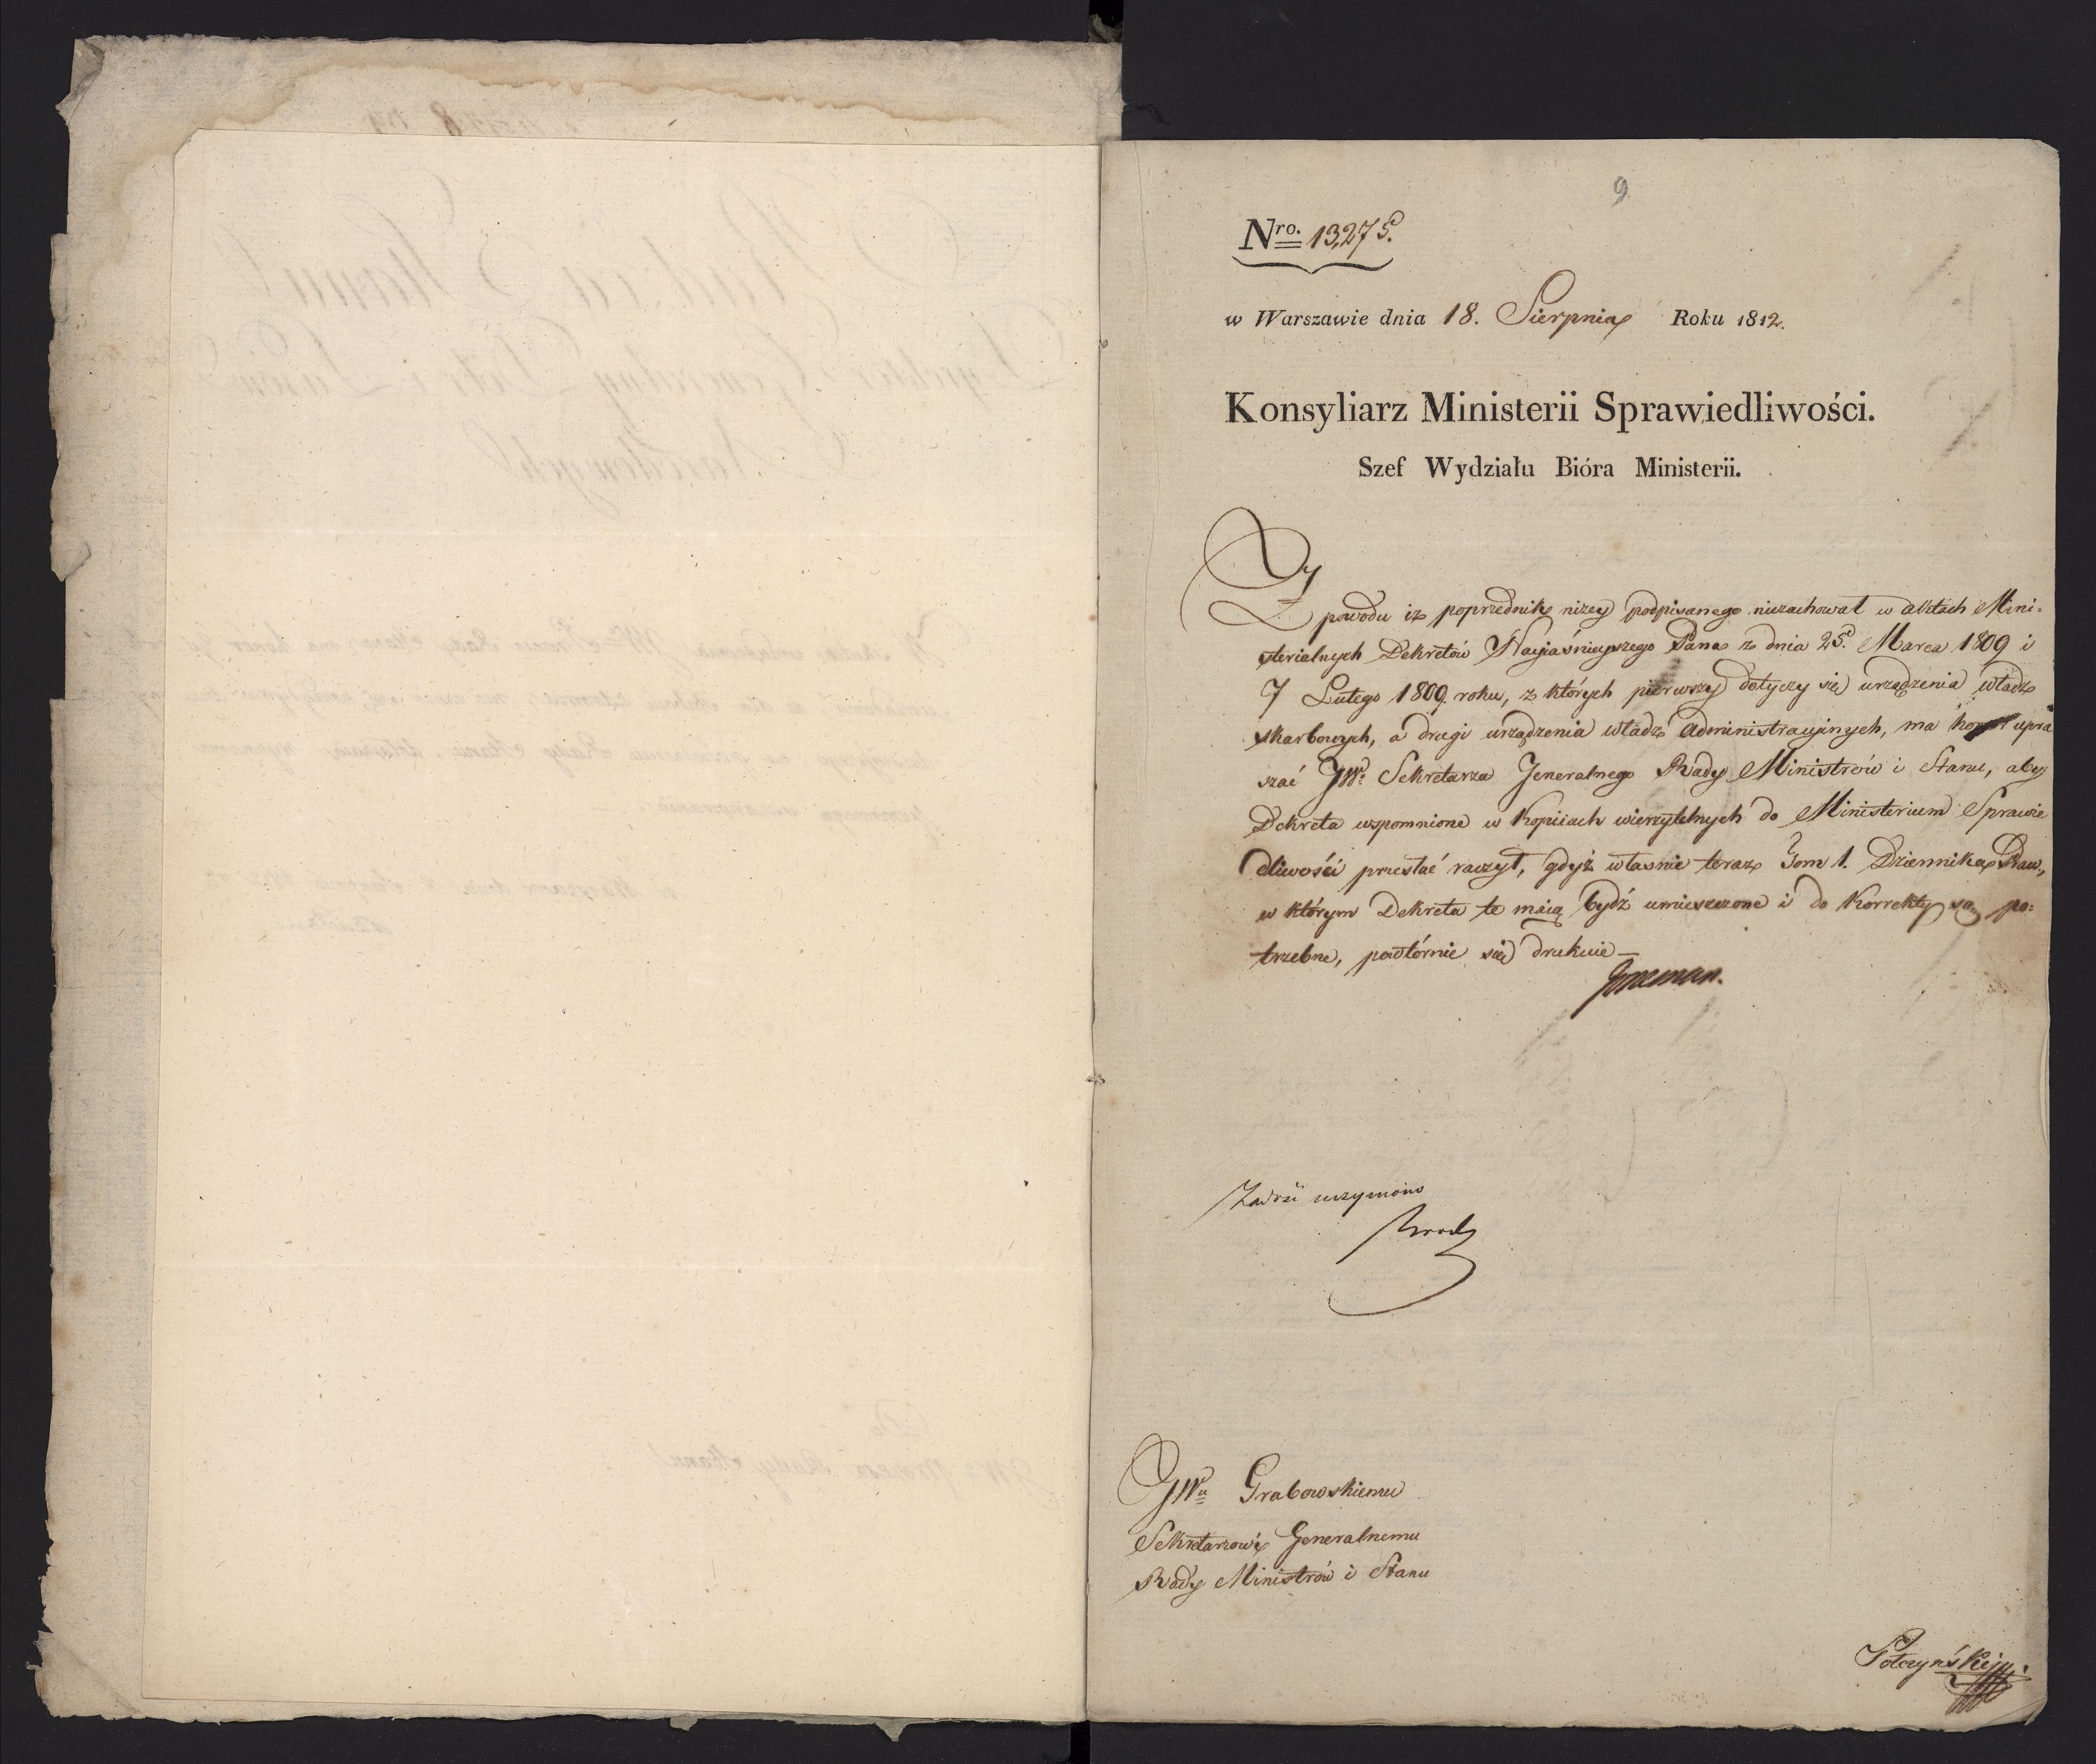 9
Nro. 13,275.
w Warszawie dnia 18. Sierpnia Roku 1812.
Konsyliarz Ministerii Sprawiedliwości.
Szef Wydziału Bióra Ministerii.
Z powodu iż poprzednik niżey podpisanego niezachował w aktach Mini-
sterialnych Dekretów Nayiaśnieyszego Pana z dnia 25. Marca 1809 i
7 Lutego 1809. roku, z których pierwszy dotyczy się urządzenia władz
skarbowych, a drugi urządzenia władz administracyinych, ma honor upra
szać JWo. Sekretarza Jeneralnego Rady Ministrów i Stanu, aby
Dekreta wspomnione w kopiiach wierzytelnych do Ministerium Sprawie
dliwości przesłać raczył, gdyż własnie teraz Tom 1. Dziennika Praw,
w którym Dekreta te maią bydź umieszczone i do korrekty są po:
trzebne, powtórnie się drukuie—
uczymono
JWu Grabowskiemu
Sekretarzowi Generalnemu
Rady Ministrów i Stanu